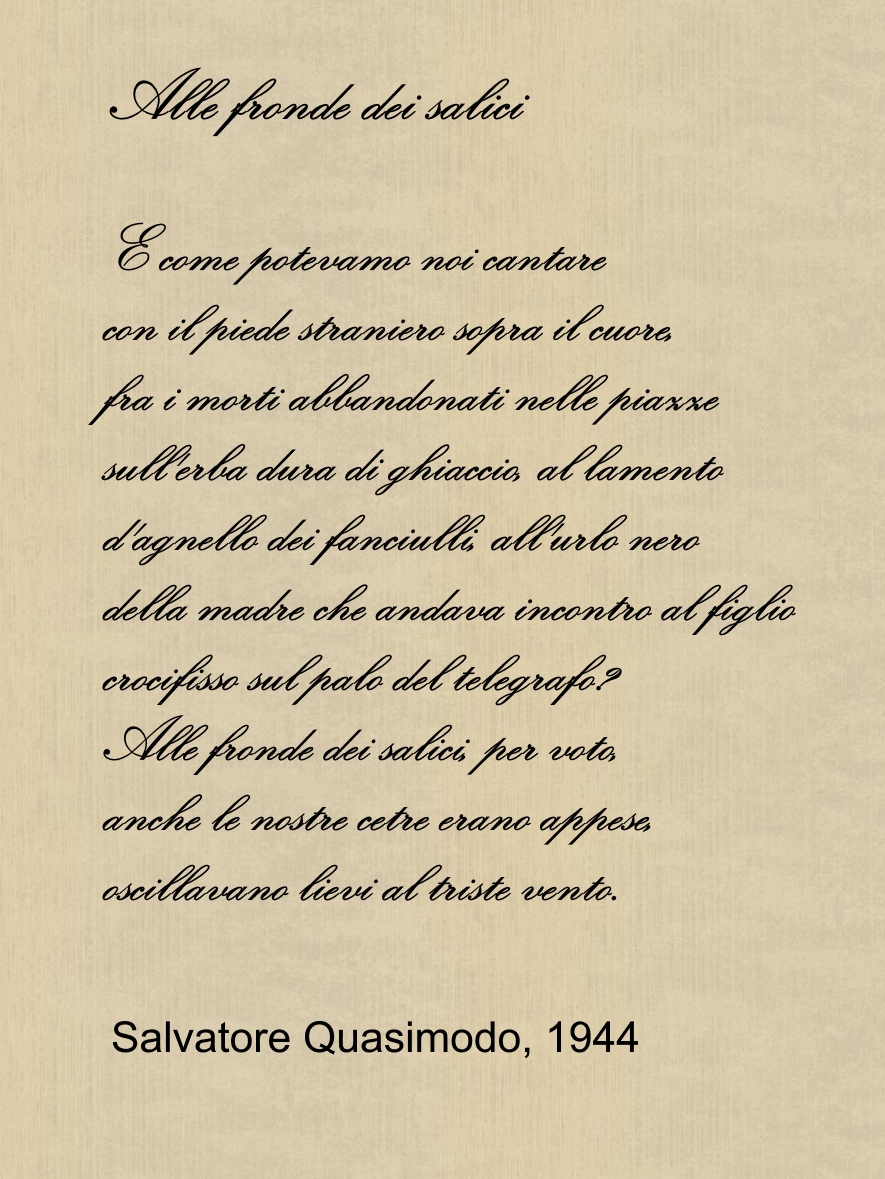 Alle fronde dei salici
E come potevamo noi cantare
con il piede straniero sopra il cuore,
fra i morti abbandonati nelle piazze
sull'erba dura di ghiaccio, al lamento
d'agnello dei fanciulli, all'urlo nero
della madre che andava incontro al figlio
crocifisso sul palo del telegrafo?
Alle fronde dei salici, per voto,
anche le nostre cetre erano appese,
oscillavano lievi al triste vento.
Salvatore Quasimodo, 1944